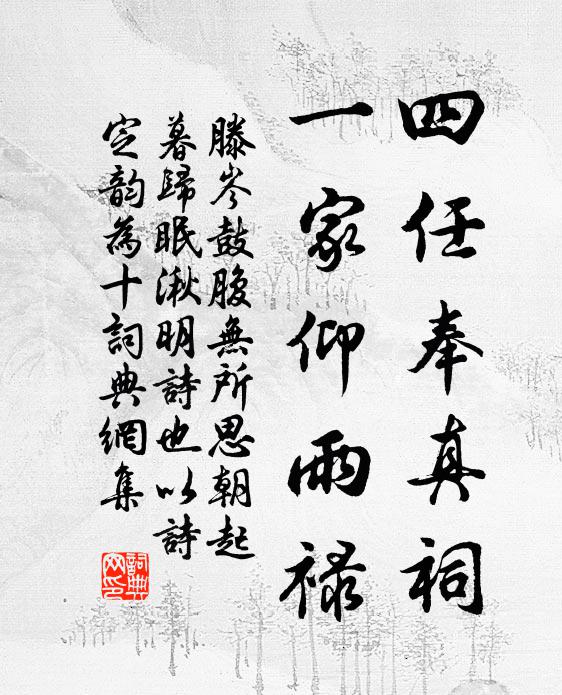 四任奉真祠
一家仰雨禄
滕岑鼓腹無所思朝起
暮歸眠湫明詩也以詩
定韵為十詞典網集
詞典
网印